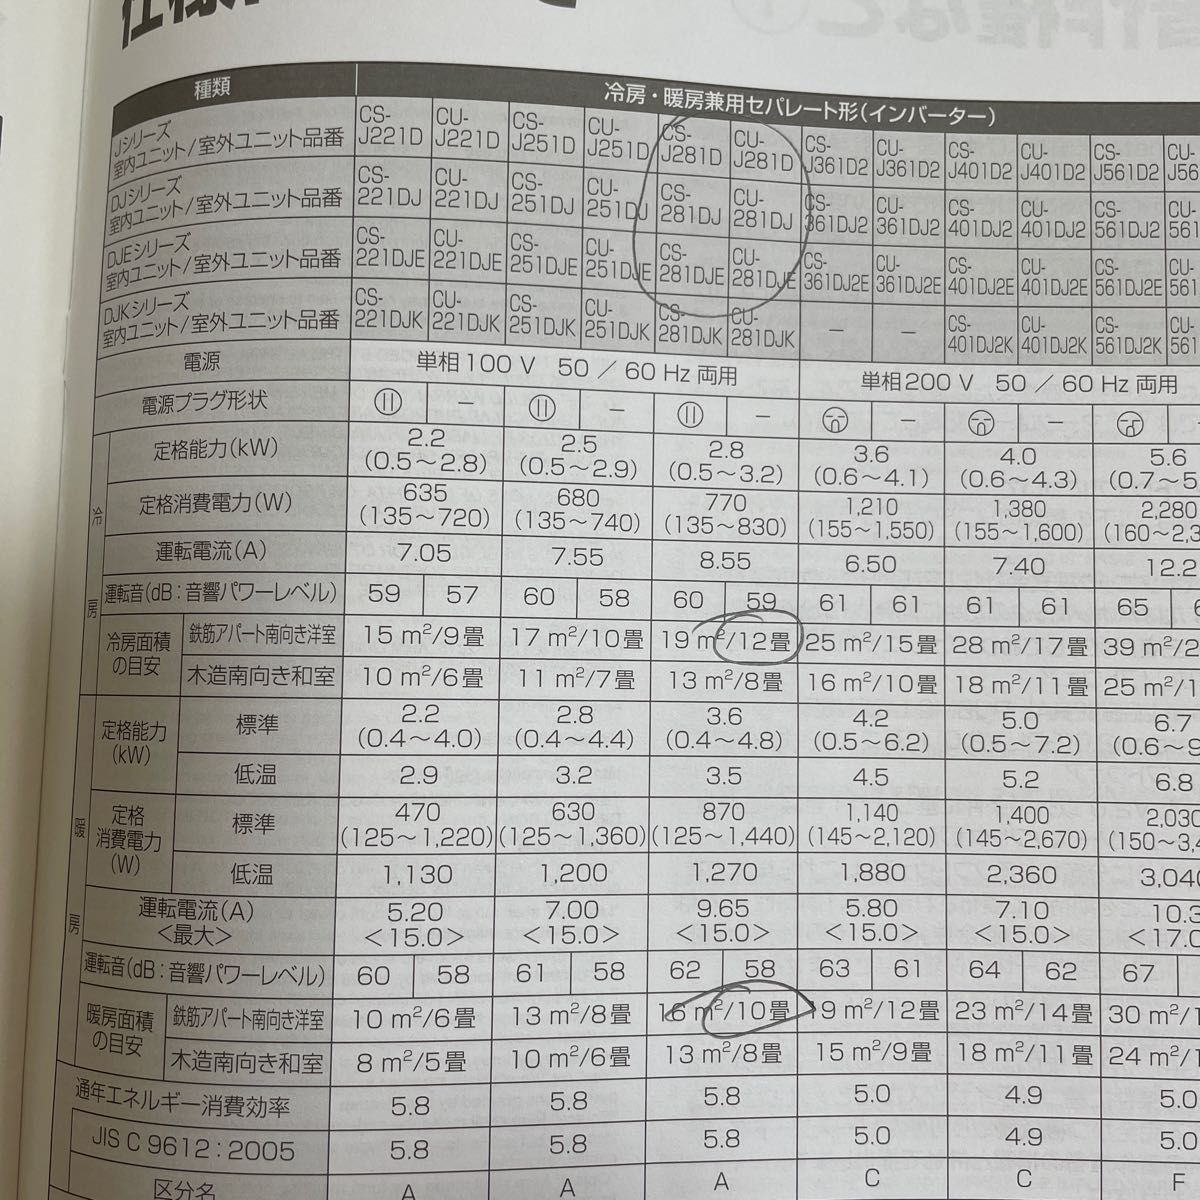 種類 冷房・暖房兼用セパレート形(インバーター)
Jシリーズ
室内ユニット/室外ユニット品番 CS-J221D CU-J221D CS-J251D CU-J251D CS-J281D CU-J281D CS-J361D2 CU-J361D2 CS-J401D2 CU-J401D2 CS-J561D2
DJシリーズ
室内ユニット/室外ユニット品番 CS-221DJ CU-221DJ CS-251DJ CU-251DJ CS-281DJ CU-281DJ CS-361DJ2 CU-361DJ2 CS-401DJ2 CU-401DJ2 CS-561DJ2
DJEシリーズ
室内ユニット/室外ユニット品番 CS-221DJE CU-221DJE CS-251DJE CU-251DJE CS-281DJE CU-281DJE CS-361DJ2E CU-361DJ2E CS-401DJ2E CU-401DJ2E CS-561DJ2E
DJKシリーズ
室内ユニット/室外ユニット品番 CS-221DJK CU-221DJK CS-251DJK CU-251DJK CS-281DJK CU-281DJK − − CS-401DJ2K CU-401DJ2K CS-561DJ2K
電源 単相100 V 50 / 60 Hz 両用 単相200 V 50 / 60 Hz 両用
電源プラグ形状 − − −
冷房
定格能力(kW) 2.2 2.5 2.8 3.6 4.0 5.6
(0.5〜2.8) (0.5〜2.9) (0.5〜3.2) (0.6〜4.1) (0.6〜4.3) (0.7〜5
定格消費電力(W) 635 680 770 1,210 1,380 2,280
(135〜720) (135〜740) (135〜830) (155〜1,550) (155〜1,600) (160〜2,3
運転電流(A) 7.05 7.55 8.55 6.50 7.40 12.2
運転音(dB:音響パワーレベル) 59 57 60 58 60 59 61 61 61 61 65
冷房面積の目安
鉄筋アパート南向き洋室 15 m²/9畳 17 m²/10畳 19 m²/12畳 25 m²/15畳 28 m²/17畳 39 m²/2
木造南向き和室 10 m²/6畳 11 m²/7畳 13 m²/8畳 16 m²/10畳 18 m²/11畳 25 m²/1
暖房
定格能力(kW)
標準 2.2 2.8 3.6 4.2 5.0 6.7
(0.4〜4.0) (0.4〜4.4) (0.4〜4.8) (0.5〜6.2) (0.5〜7.2) (0.6〜9
低温 2.9 3.2 3.5 4.5 5.2 6.8
定格消費電力(W)
標準 470 630 870 1,140 1,400 2,030
(125〜1,220) (125〜1,360) (125〜1,440) (145〜2,120) (145〜2,670) (150〜3,4
低温 1,130 1,200 1,270 1,880 2,360 3,040
運転電流(A) 5.20 7.00 9.65 5.80 7.10 10.3
<最大> <15.0> <15.0> <15.0> <15.0> <15.0> <17.0
運転音(dB:音響パワーレベル) 60 58 61 58 62 58 63 61 64 62 67
暖房面積の目安
鉄筋アパート南向き洋室 10 m²/6畳 13 m²/8畳 16 m²/10畳 19 m²/12畳 23 m²/14畳 30 m²/1
木造南向き和室 8 m²/5畳 10 m²/6畳 13 m²/8畳 15 m²/9畳 18 m²/11畳 24 m²/1
通年エネルギー消費効率 5.8 5.8 5.8 5.0 4.9 5.0
JIS C 9612:2005 5.8 5.8 5.8 5.0 4.9 5.0
区分名 A A A C C F